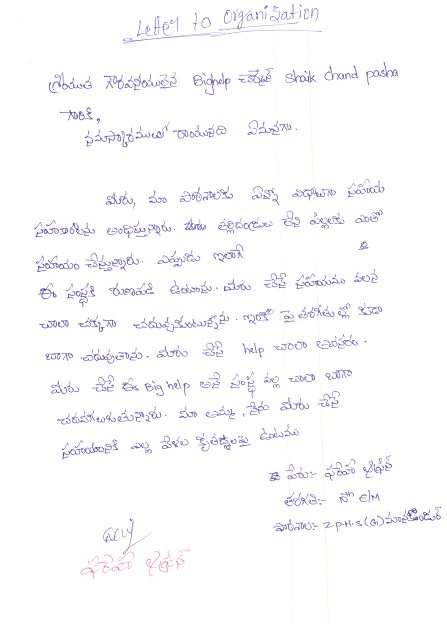 Letter to Organisation
శ్రీయుత గౌరవనీయులైన Bighelp చైర్మన్ Shaik chand pasha
గారికి,
నమస్కారములతో రాయునది ఏమనగా.
మీరు, మా పాఠశాలకు ఎన్నో విధాలుగా సహాయ
సహకారాలను అందిస్తున్నారు. తల్లిదండ్రులు లేని పిల్లలకు ఎంతో
సహాయం చేస్తున్నారు. ఎప్పుడు ఇలాగే
ఈ సంస్థకి రుణపడి ఉంటాను. మీరు చేసే సహాయము వలన
చాలా చక్కగా చదువుకుంటున్నాను. ఇంకా పై తరగతుల్లో కూడా
బాగా చదువుతాను. మీరు చేసే help చాలా అవసరం.
మీరు చేసే ఈ Big help అనే సంస్థ వల్ల చాలా బాగా
చదవగలుగుతున్నారు. మా అమ్మ, నేను మీరు చేసే
సహాయానికి ఎల్ల వేళలా కృతజ్ఞులమై ఉంటాము
పేరు:-
తరగతి:- E/M
పాఠశాల:- Z.P.H.S (G)